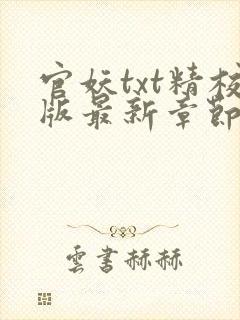 官妖txt精校
版最新章節
雲書赫赫